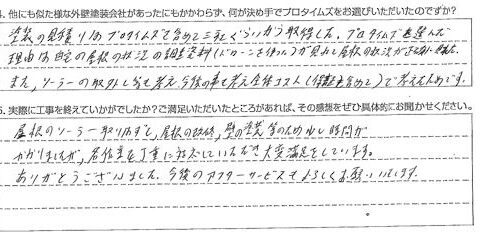 4. 他にも似た様な外壁塗装会社があったにもかかわらず、何が決め手でプロタイムズをお選びいただいたのですか?
塗装の見積りはプロタイムズを含めて三社ぐらいから取得した。プロタイムズを選んだ
理由は自宅の屋根の状況の調査資料(ドローンを使った)が見れて屋根の状況が
また、ソーラーの取外しを考え今後の事を考え全体コスト(含めて)で考えたためです。
5. 実際に工事を終えていかがでしたか?ご満足いただいたところがあれば、その感想をぜひ具体的にお聞かせください。
屋根のソーラー取り外し、屋根の、壁の塗装等のため少し時間が
かかりましたが、各作業を丁寧に対応していただき大変満足をしています。
ありがとうございました。今後のアフターサービスもよろしくお願いいたします。